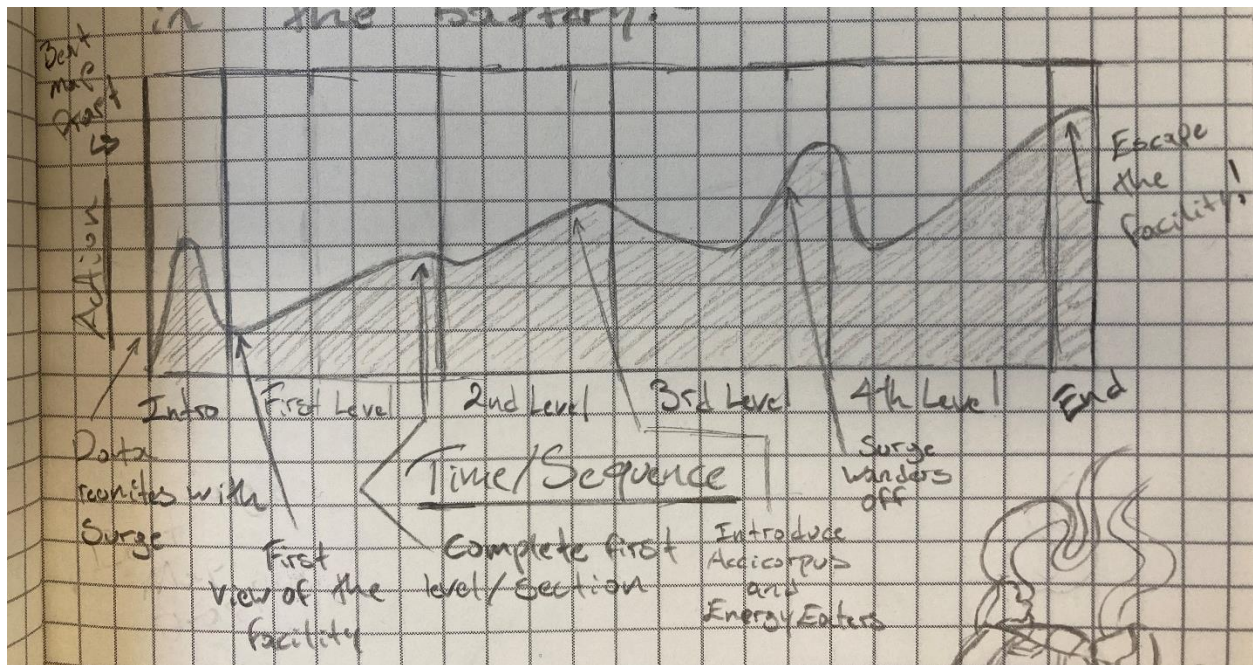 in the battery.
Beat
Map
Draft
Action
Intro
First Level
2nd Level
3rd Level
4th Level
End
Time/Sequence
Escape
the
facility!
reunites with
Surge
First
view of the
facility
Complete first
level/section
Introduce
Accicorpus
and
Energy Eaters
Surge
wanders
off